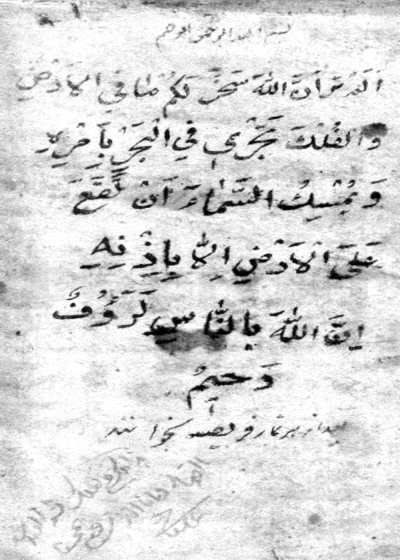 بسم الله الرحمن الرحيم
اَلَمْ تَرَ اَنَّ اللّٰهَ سَخَّرَ لَكُمْ مَا فِي الْاَرْضِ
وَالْفُلْكَ تَجْرِي فِي الْبَحْرِ بِاَمْرِهِ
وَيُمْسِكُ السَّمَاءَ اَنْ تَقَعَ
عَلَى الْاَرْضِ اِلَّا بِاِذْنِهِ
اِنَّ اللّٰهَ بِالنَّاسِ لَرَؤُفٌ
رَحِيمٌ
بعد از هر نماز فريضه بخوانند